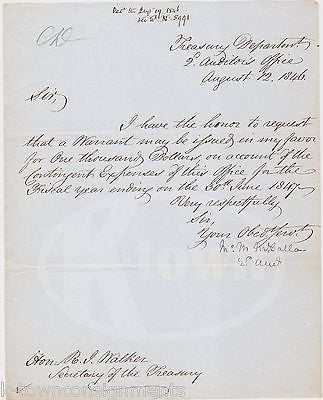 Treasury Department
2d. Auditors Office
August 12. 1846.
Sir,
I have the honor to request
that a Warrant may be issued in my favor
for One thousand Dollars, on account of the
Contingent Expenses of this Office for the
Fiscal year ending on the 30th June 1847.
Very respectfully
Sir,
Your Obedt Servt.
2d Audt
Hon: R. J. Walker
Secretary of the Treasury
k-townconsignments
k-townconsignments.com